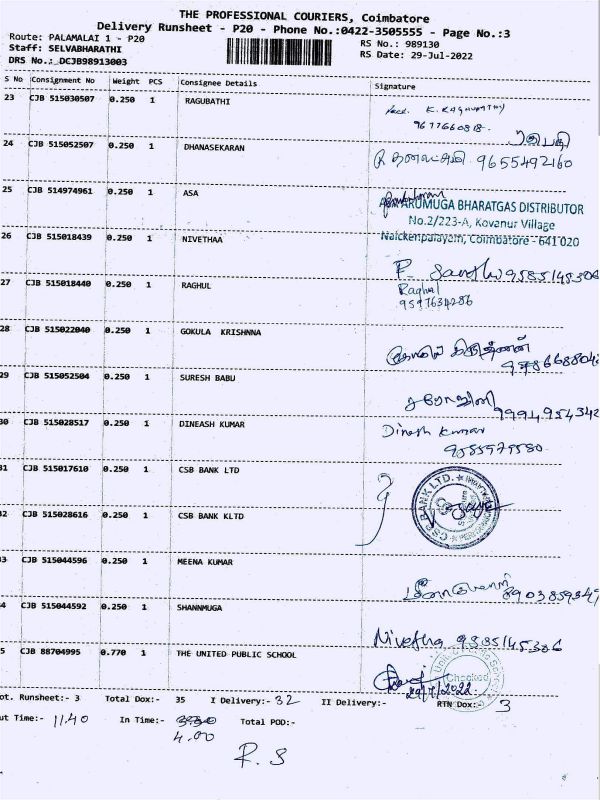 THE PROFESSIONAL COURIERS, Coimbatore
Delivery Runsheet - P20 - Phone No.:0422-3505555 - Page No.:3
Route: PALAMALAI 1 - P20
RS No.: 989130
Staff: SELVABHARATHI
RS Date: 29-Jul-2022
DRS No.: DCJB98913003
S No Consignment No Weight PCS Consignee Details Signature
23 CJB 515030507 0.250 1 RAGUBATHI
K. RAGHUPATHY
9677660818
24 CJB 515052507 0.250 1 DHANASEKARAN
9655492160
25 CJB 514974961 0.250 1 ASA
ARUMUGA BHARATGAS DISTRIBUTOR
No.2/223-A, Kovanur Village
Naickenpalayam, Coimbatore - 641 020
26 CJB 515018439 0.250 1 NIVETHAA
9585145306
27 CJB 515018440 0.250 1 RAGHUL
Raghul
9597634286
28 CJB 515022040 0.250 1 GOKULA KRISHNNA
29 CJB 515052504 0.250 1 SURESH BABU
சரோஜினி
9994954342
30 CJB 515028517 0.250 1 DINEASH KUMAR
Dinesh Kumar
9085979580
31 CJB 515017610 0.250 1 CSB BANK LTD
CSB BANK LTD.
32 CJB 515028616 0.250 1 CSB BANK KLTD
33 CJB 515044596 0.250 1 MEENA KUMAR
34 CJB 515044592 0.250 1 SHANNMUGA
Nivetha 9385145306
35 CJB 88704995 0.770 1 THE UNITED PUBLIC SCHOOL
Checked
29/7/2022
ot. Runsheet:- 3 Total Dox:- 35 I Delivery:- 32 II Delivery:- RTN Dox:- 3
ut Time:- 11.40 In Time:- Total POD:-
4.00
R. S